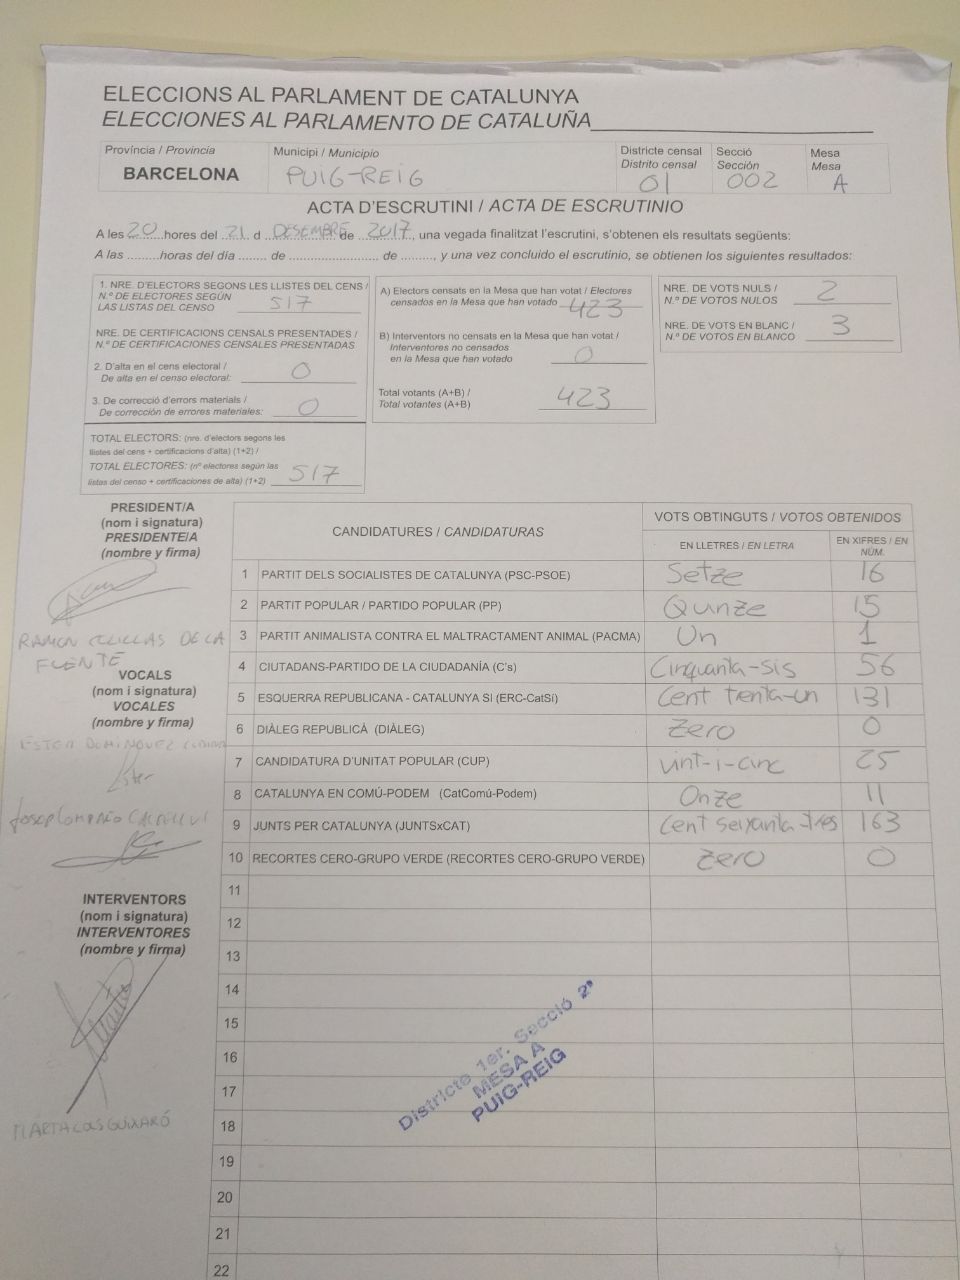 ELECCIONS AL PARLAMENT DE CATALUNYA
ELECCIONES AL PARLAMENTO DE CATALUÑA
Província / Provincia
BARCELONA
Municipi / Municipio
PUIG-REIG
Districte censal
Distrito censal
01
Secció
Sección
002
Mesa
Mesa
A
ACTA D'ESCRUTINI / ACTA DE ESCRUTINIO
A les 20 hores del 21 d DESEMBRE de 2017, una vegada finalitzat l'escrutini, s'obtenen els resultats següents:
A las ........horas del día ........ de ........................ de ........., y una vez concluido el escrutinio, se obtienen los siguientes resultados:
1. NRE. D'ELECTORS SEGONS LES LLISTES DEL CENS /
N.º DE ELECTORES SEGÚN
LAS LISTAS DEL CENSO 517
NRE. DE CERTIFICACIONS CENSALS PRESENTADES /
N.º DE CERTIFICACIONES CENSALES PRESENTADAS
2. D'alta en el cens electoral /
De alta en el censo electoral: 0
3. De correcció d'errors materials /
De corrección de errores materiales: 0
TOTAL ELECTORS: (nre. d'electors segons les
llistes del cens + certificacions d'alta) (1+2) /
TOTAL ELECTORES: (nº electores según las
listas del censo + certificaciones de alta) (1+2) 517
A) Electors censats en la Mesa que han votat / Electores
censados en la Mesa que han votado 423
B) Interventors no censats en la Mesa que han votat /
Interventores no censados
en la Mesa que han votado 0
Total votants (A+B) /
Total votantes (A+B) 423
NRE. DE VOTS NULS /
N.º DE VOTOS NULOS 2
NRE. DE VOTS EN BLANC /
N.º DE VOTOS EN BLANCO 3
PRESIDENT/A
(nom i signatura)
PRESIDENTE/A
(nombre y firma)
RAMON DE LA
FUENTE
VOCALS
(nom i signatura)
VOCALES
(nombre y firma)
ESTER DOMINGUEZ
Ester
Josep
INTERVENTORS
(nom i signatura)
INTERVENTORES
(nombre y firma)
MARTA GUIXARÓ
CANDIDATURES / CANDIDATURAS
VOTS OBTINGUTS / VOTOS OBTENIDOS
EN LLETRES / EN LETRA
EN XIFRES / EN
NÚM.
1 PARTIT DELS SOCIALISTES DE CATALUNYA (PSC-PSOE) Setze 16
2 PARTIT POPULAR / PARTIDO POPULAR (PP) Qunze 15
3 PARTIT ANIMALISTA CONTRA EL MALTRACTAMENT ANIMAL (PACMA) Un 1
4 CIUTADANS-PARTIDO DE LA CIUDADANÍA (C's) Cinquanta-sis 56
5 ESQUERRA REPUBLICANA - CATALUNYA SI (ERC-CatSí) Cent trenta-un 131
6 DIÀLEG REPUBLICÀ (DIÀLEG) Zero 0
7 CANDIDATURA D'UNITAT POPULAR (CUP) vint-i-cinc 25
8 CATALUNYA EN COMÚ-PODEM (CatComú-Podem) Onze 11
9 JUNTS PER CATALUNYA (JUNTSxCAT) Cent seixanta-tres 163
10 RECORTES CERO-GRUPO VERDE (RECORTES CERO-GRUPO VERDE) Zero 0
11
12
13
14
15
16
17
18
19
20
21
22
Districte 1er. Secció 2ª
MESA A
PUIG-REIG